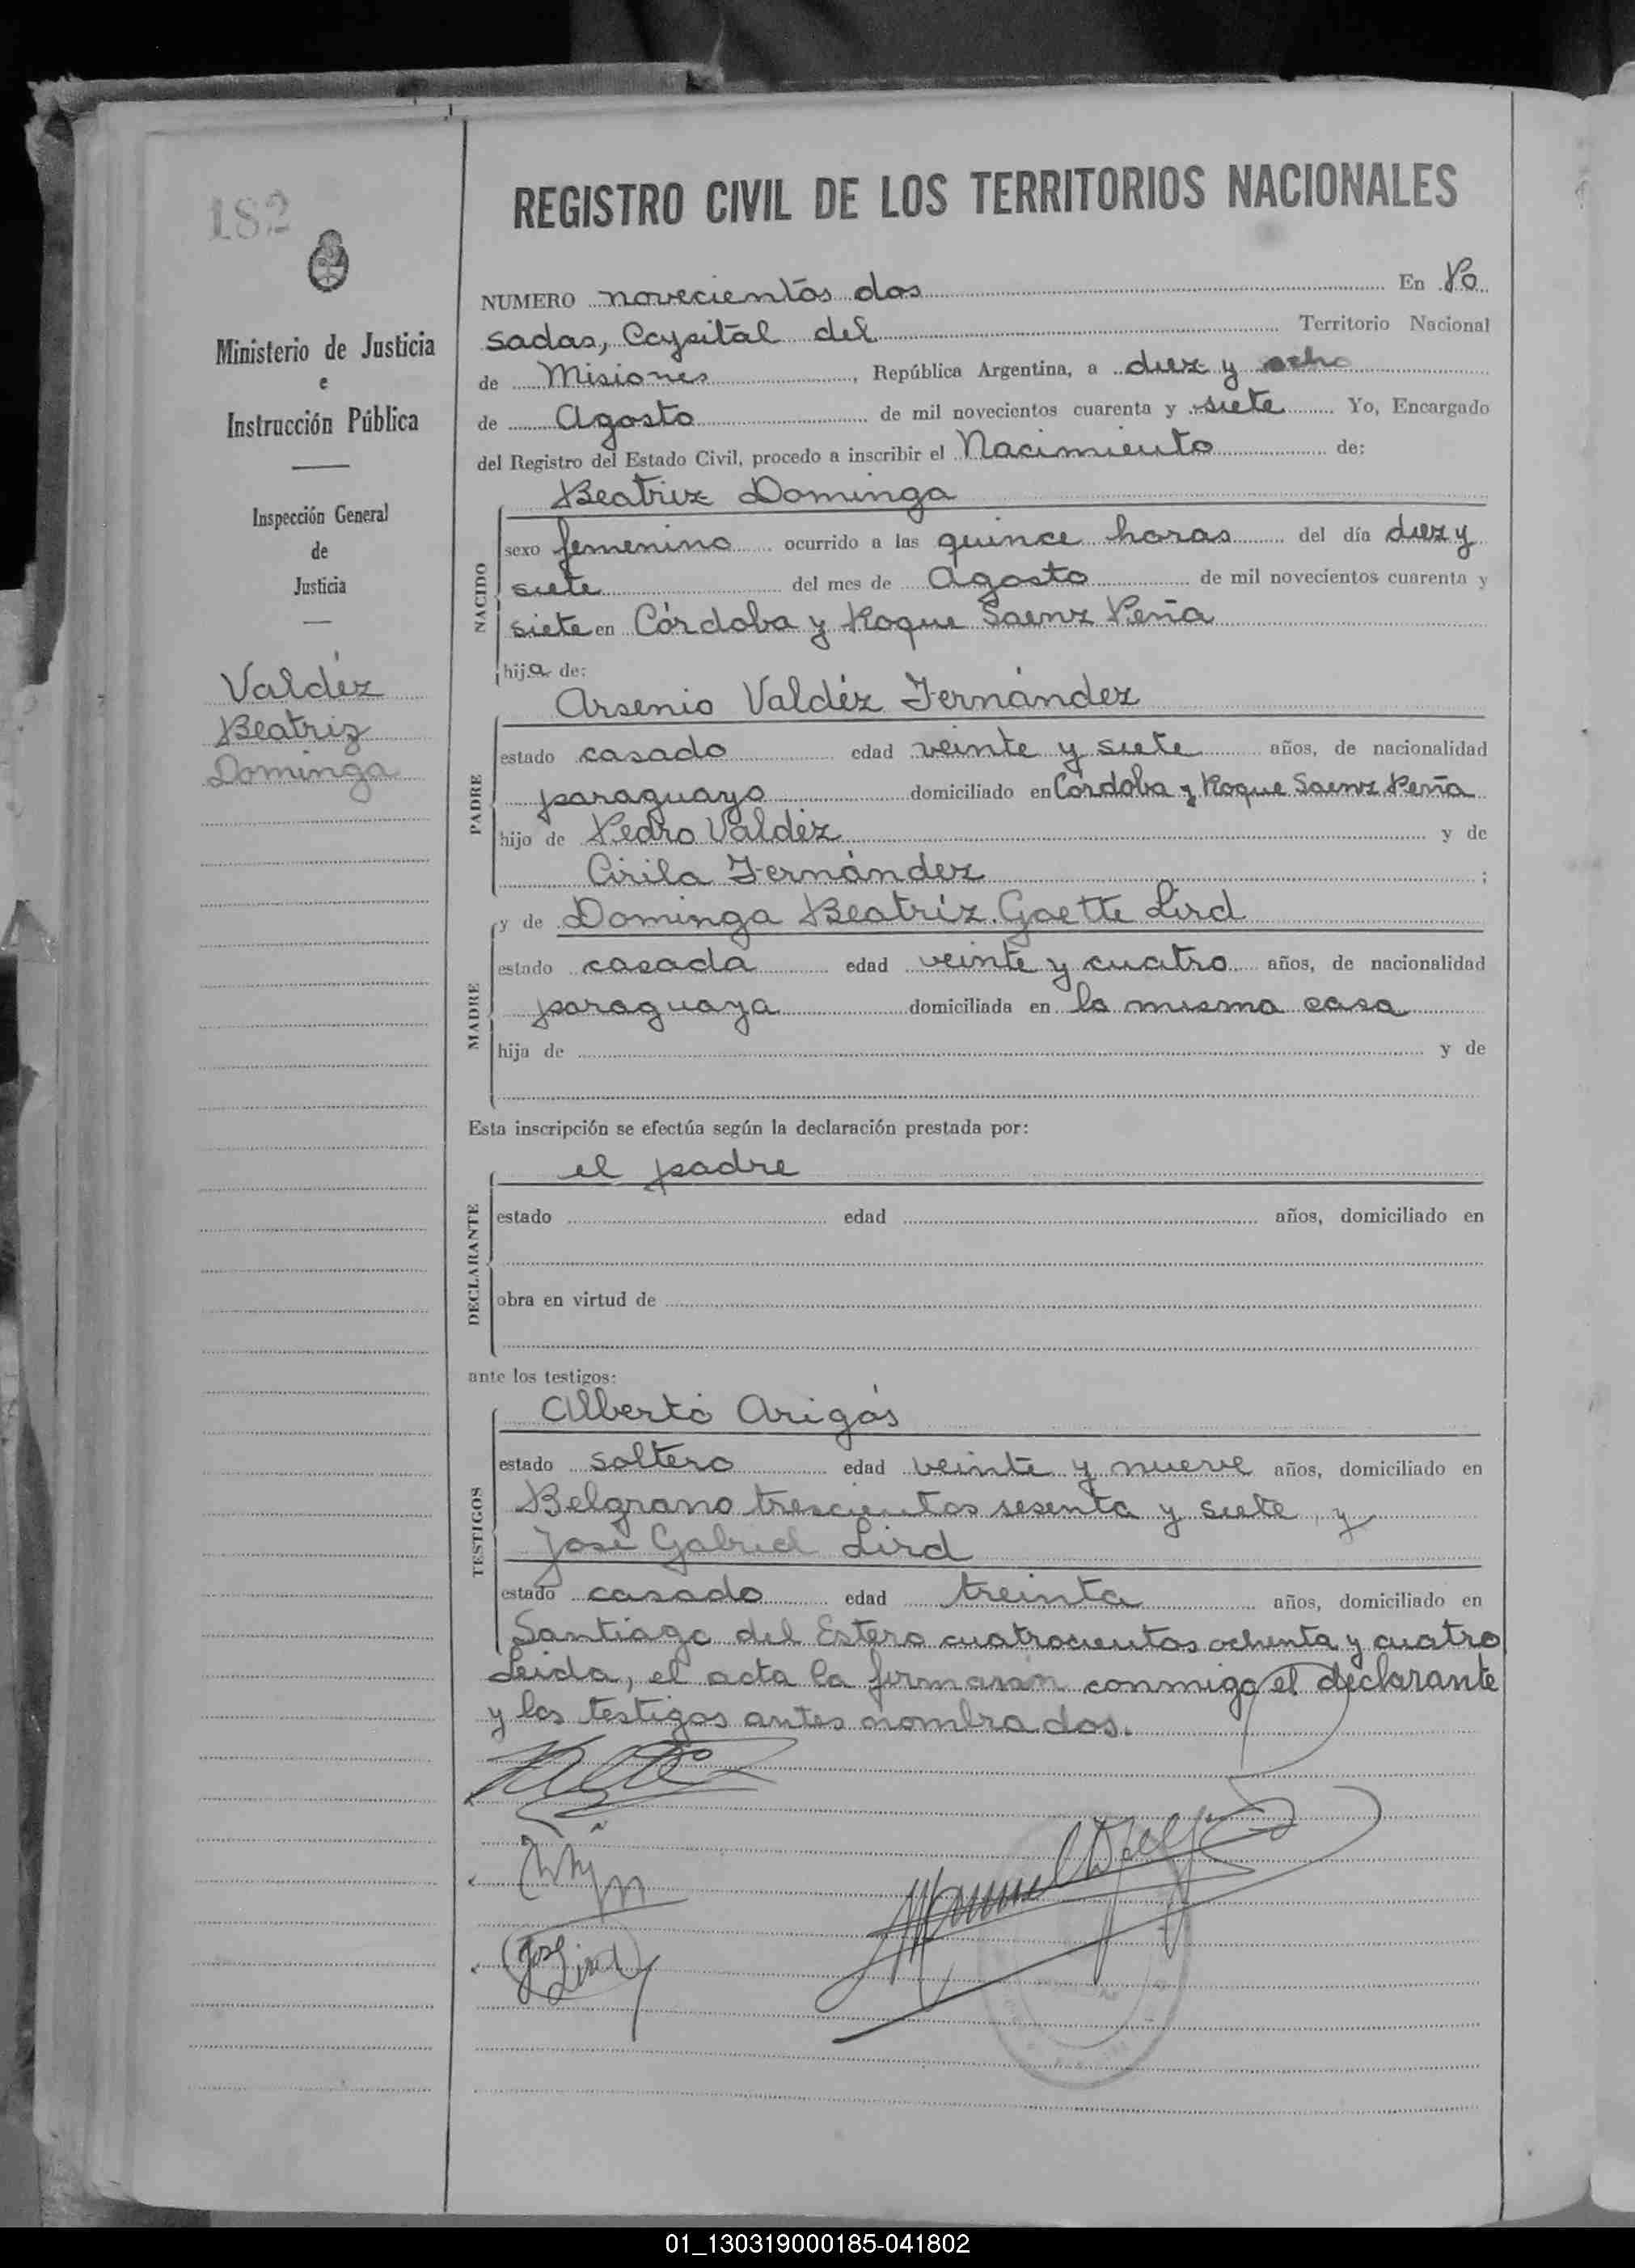 182
Ministerio de Justicia
e
Instrucción Pública
Inspección General
de
Justicia
Valdéz
Beatriz
Dominga
REGISTRO CIVIL DE LOS TERRITORIOS NACIONALES
NUMERO novecientos dos En Po
sadas, Capital del Territorio Nacional
de Misiones, República Argentina, a diez y ocho
de Agosto de mil novecientos cuarenta y siete Yo, Encargado
del Registro del Estado Civil, procedo a inscribir el Nacimiento de:
NACIDO
Beatriz Dominga
sexo femenino ocurrido a las quince horas del día diez y
siete del mes de Agosto de mil novecientos cuarenta y
siete en Córdoba y Roque Saenz Peña
hija de:
PADRE
Arsenio Valdéz Fernández
estado casado edad veinte y siete años, de nacionalidad
paraguayo domiciliado en Córdoba y Roque Saenz Peña
hijo de Pedro Valdéz y de
Cirila Fernández ;
MADRE
y de Dominga Beatríz Gaette Lird
estado casada edad veinte y cuatro años, de nacionalidad
paraguaya domiciliada en la misma casa
hija de y de
Esta inscripción se efectúa según la declaración prestada por:
DECLARANTE
el padre
estado edad años, domiciliado en
obra en virtud de
ante los testigos:
TESTIGOS
Alberto Arigós
estado soltero edad veinte y nueve años, domiciliado en
Belgrano trescientos sesenta y siete, y
José Gabriel Lird
estado casado edad treinta años, domiciliado en
Santiago del Estero cuatrocientos ochenta y cuatro
Leida, el acta la firmaron conmigo el declarante
y los testigos antes nombrados.
José Lird
01_130319000185-041802